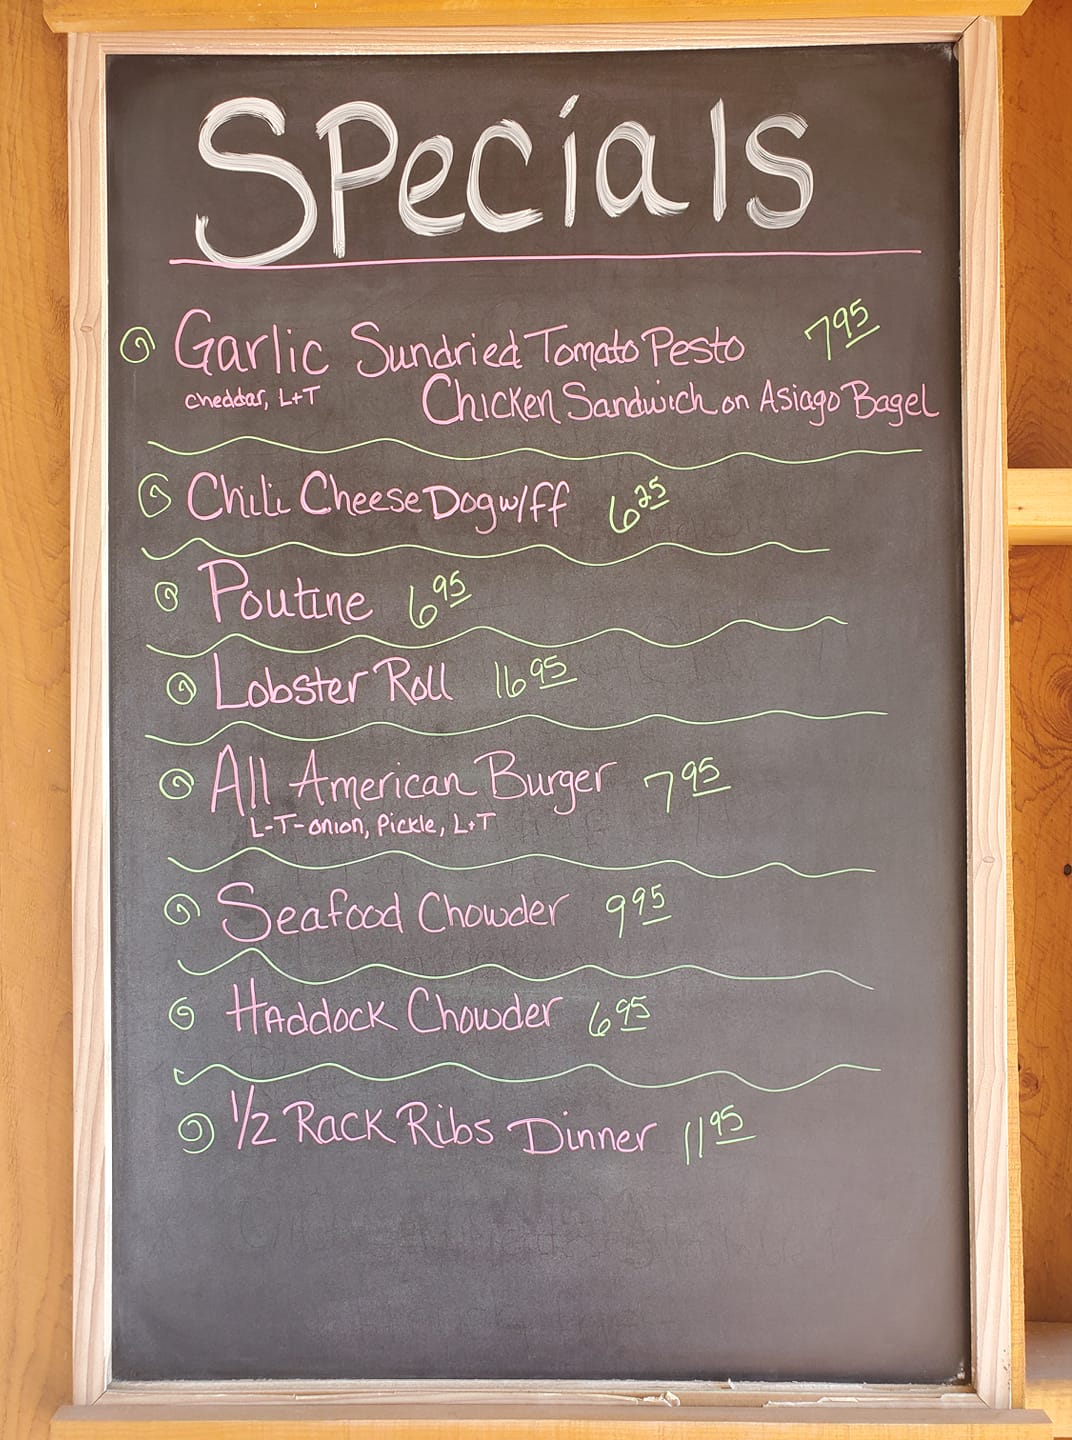 SPecials
Garlic Sundried Tomato Pesto 7.95
cheddar, L+T Chicken Sandwich on Asiago Bagel
Chili Cheese Dog w/ff 6.25
Poutine 6.95
Lobster Roll 16.95
All American Burger 7.95
L-T-onion, Pickle, L+T
Seafood Chowder 9.95
HAddock Chowder 6.95
1/2 Rack Ribs Dinner 11.95